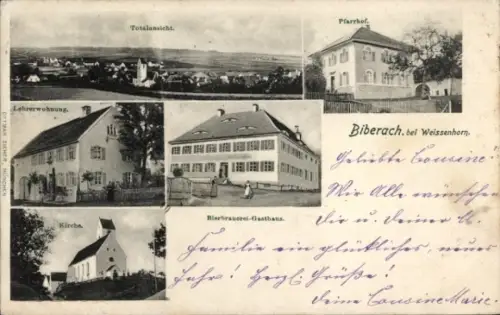 Totalansicht.
Pfarrhof.
Lehrerwohnung.
Biberach. bei Weissenhorn.
Bierbrauerei-Gasthaus.
Kirche.
Geliebte Cousine!
Wir Alle wünschen
Dir u. deiner lb.
Familie ein glückliches, neues
Jahr! Herzl. Grüße!
deine Cousine Marie.